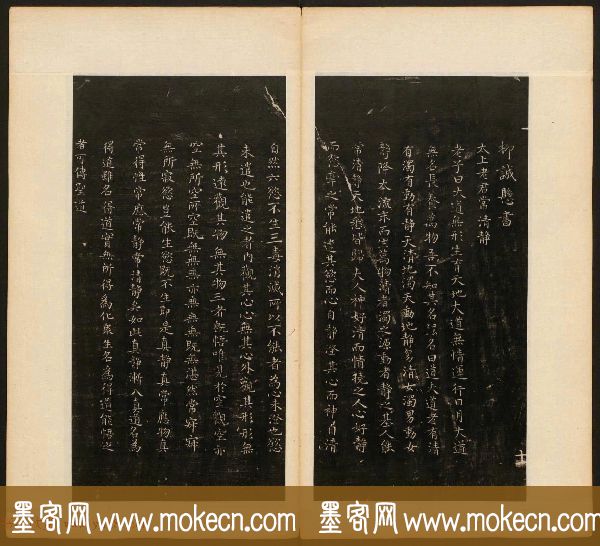 柳誠懸書
太上老君常清靜
老子曰大道無形生育天地大道無情運行日月大道
無名長養萬物吾不知其名强名曰道夫道者有清
有濁有動有靜天清地濁天動地靜男清女濁男動女
靜降本流末而生萬物清者濁之源動者靜之基人能
常清靜天地悉皆歸夫人神好清而情撓之人心好靜
而慾牽之常能遣其慾而心自靜澄其心而神自清
自然六慾不生三毒消滅所以不能者為心未澄也慾
未遣也能遣之者內觀其心心無其心外觀其形形無
其形遠觀其物物無其物三者旣悟唯見於空觀空亦
空無所空所空旣無無無亦無無無旣無湛然常寂寂
無所寂慾豈能生慾旣不生即是真靜真常應物真
常得性常應常靜常清靜矣如此真靜漸入真道名為
得道雖名得道實無所得為化衆生名為得道能悟之
者可傳聖道
墨客网 www.mokecn.com 墨客网 www.mokecn.com